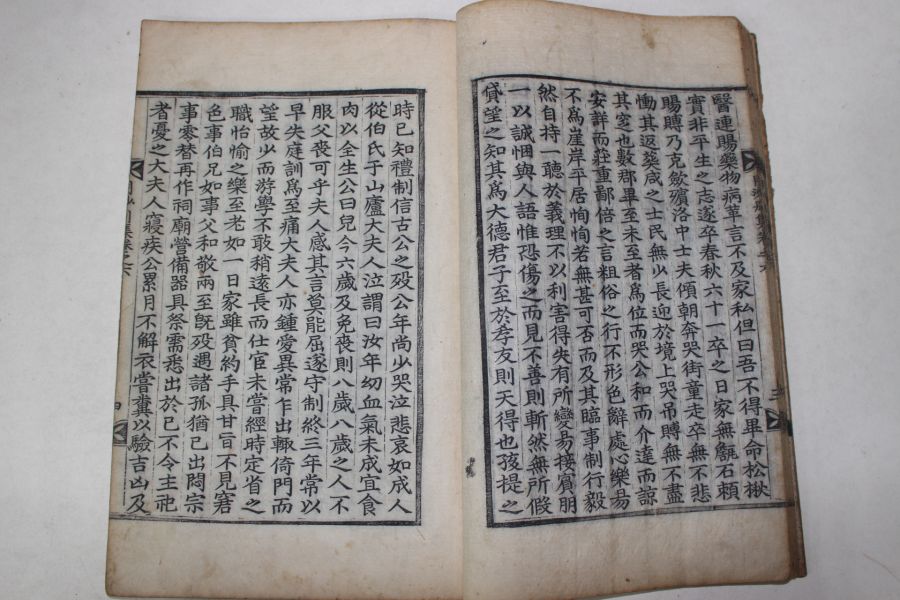 醫連賜藥物病革言不及家私但曰吾不得畢命松楸
實非平生之志遂卒春秋六十一卒之日家無甔石賴
賜賻乃克斂殯洛中士夫傾朝奔哭街童走卒無不悲
慟其返葬咸之士民無少長迎於境上哭吊賻無不盡
其窆也數郡畢至未至者爲位而哭公和而介達而諒
安詳而莊重鄙倍之言粗俗之行不形色辭處心樂昜
不爲崖岸平居恂恂若無甚可否而及其臨事制行毅
然自持一聽於義理不以利害得失有所變易接賓朋
一以誠悃與人語惟恐傷之而見不善則斬然無所假
貸望之知其爲大德君子至於孝友則天得也孩提之
時已知禮制信古公之歿公年尚少哭泣悲哀如成人
從伯氏于山廬大夫人泣謂曰汝年幼血氣未成宜食
肉以全生公曰兒今六歲及免喪則八歲八歲之人不
服父喪可乎夫人感其言莫能屈遂守制終三年常以
早失庭訓爲至痛大夫人亦鍾愛異常乍出輒倚門而
望故少而游學不敢稍遠長而仕宦未嘗經時定省之
職怡愉之樂至老如一日家雖貧約手具甘旨不見窘
色事伯兄如事父和敬兩至旣歿週諸孤猶己出悶宗
事零替再作祠廟營備器具祭需悉出於己不令主祀
者憂之大夫人寢疾公累月不解衣嘗糞以驗吉凶及
四